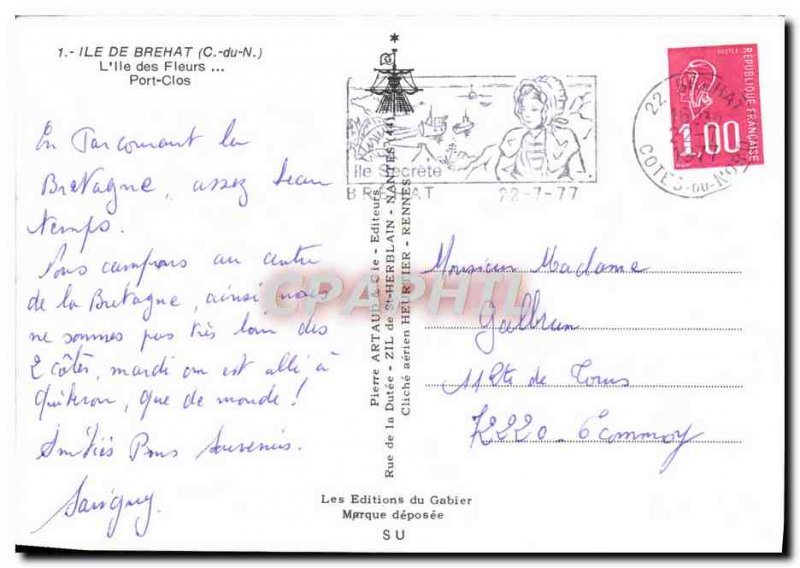 1.- ILE DE BREHAT (C.-du-N.)
L'Ile des Fleurs ...
Port-Clos
En Parcourant la
Bretagne, assez beau
temps.
Nous campons au centre
de la Bretagne, ainsi nous
ne sommes pas très loin des
2 côtés, mardi on est allé à
Quiberon, que de monde !
Amitiés Bons Souvenirs.
Savigny
Ile Secrète
BREHAT 22-7-77
Pierre ARTAUD & Cie - Editeurs
Rue de la Dutée - ZIL de St-HERBLAIN - NANTES (44)
Cliché aérien HEURTIER - RENNES
CPAPHIL
POSTES
REPUBLIQUE FRANÇAISE
1,00
22
BREHAT
1977
COTES-DU-NORD
Monsieur Madame
Galbrun
de Tours
72220 - Ecommoy
Les Editions du Gabier
Marque déposée
S U